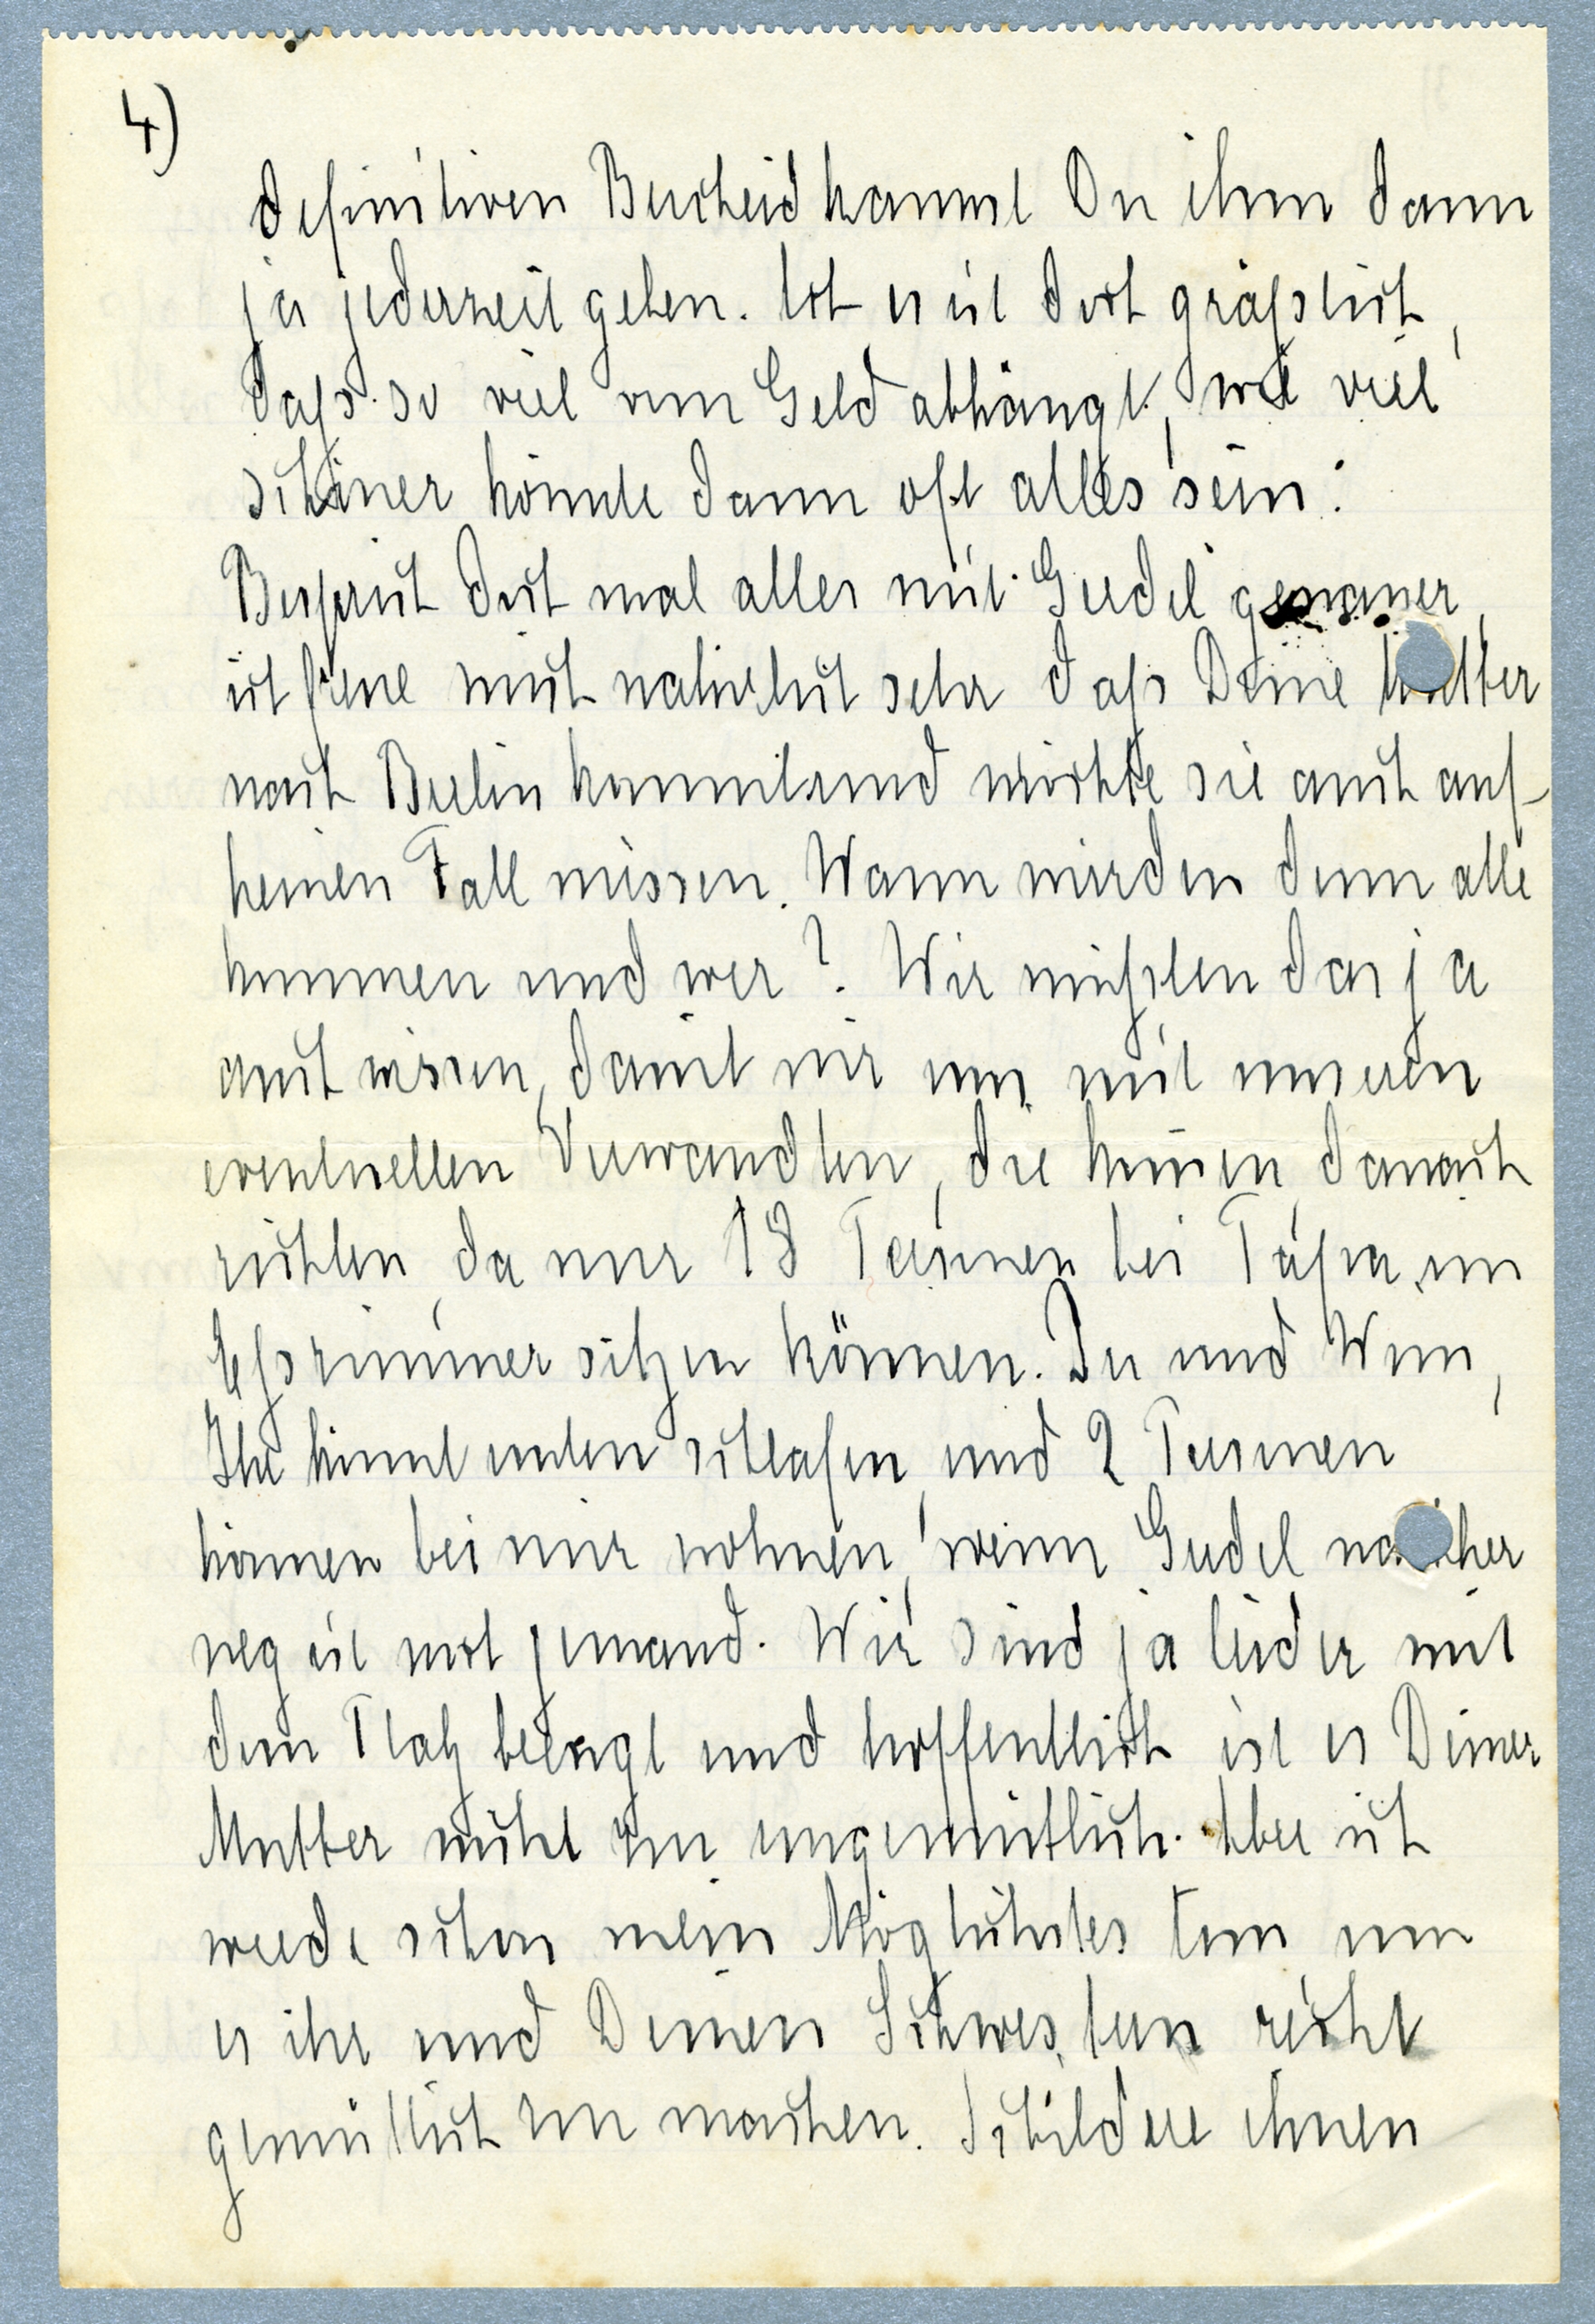 4)
definitiven Bescheid kannst Du ihm dann
ja jederzeit geben. Ach es ist doch gräßlich,
daß so viel vom Geld abhängt, wie viel
schöner könnte dann oft alles sein!
Besprich doch mal alles mit Gudel genauer,
ich freue mich natürlich sehr daß Deine Mutter
nach Berlin kommt und möchte sie auch auf
keinen Fall missen. Wann würden denn alle
kommen und wer? Wir müßten das ja
auch wissen, damit wir uns mit unseren
eventuellen Verwandten, die kämen, danach
richten, da nur 18 Personen bei Papa im
Eßzimmer sitzen können. Du und
Ihr könnt unten schlafen und 2 Personen
können bei mir wohnen, wenn Gudel nachher
weg ist noch jemand. Wir sind ja leider mit
dem Platz beengt und hoffentlich ist es Deiner
Mutter nicht zu ungemütlich. Aber ich
werde schon mein Möglichstes tun um
es ihr und Deinen Schwestern recht
gemütlich zu machen. Schildere ihnen